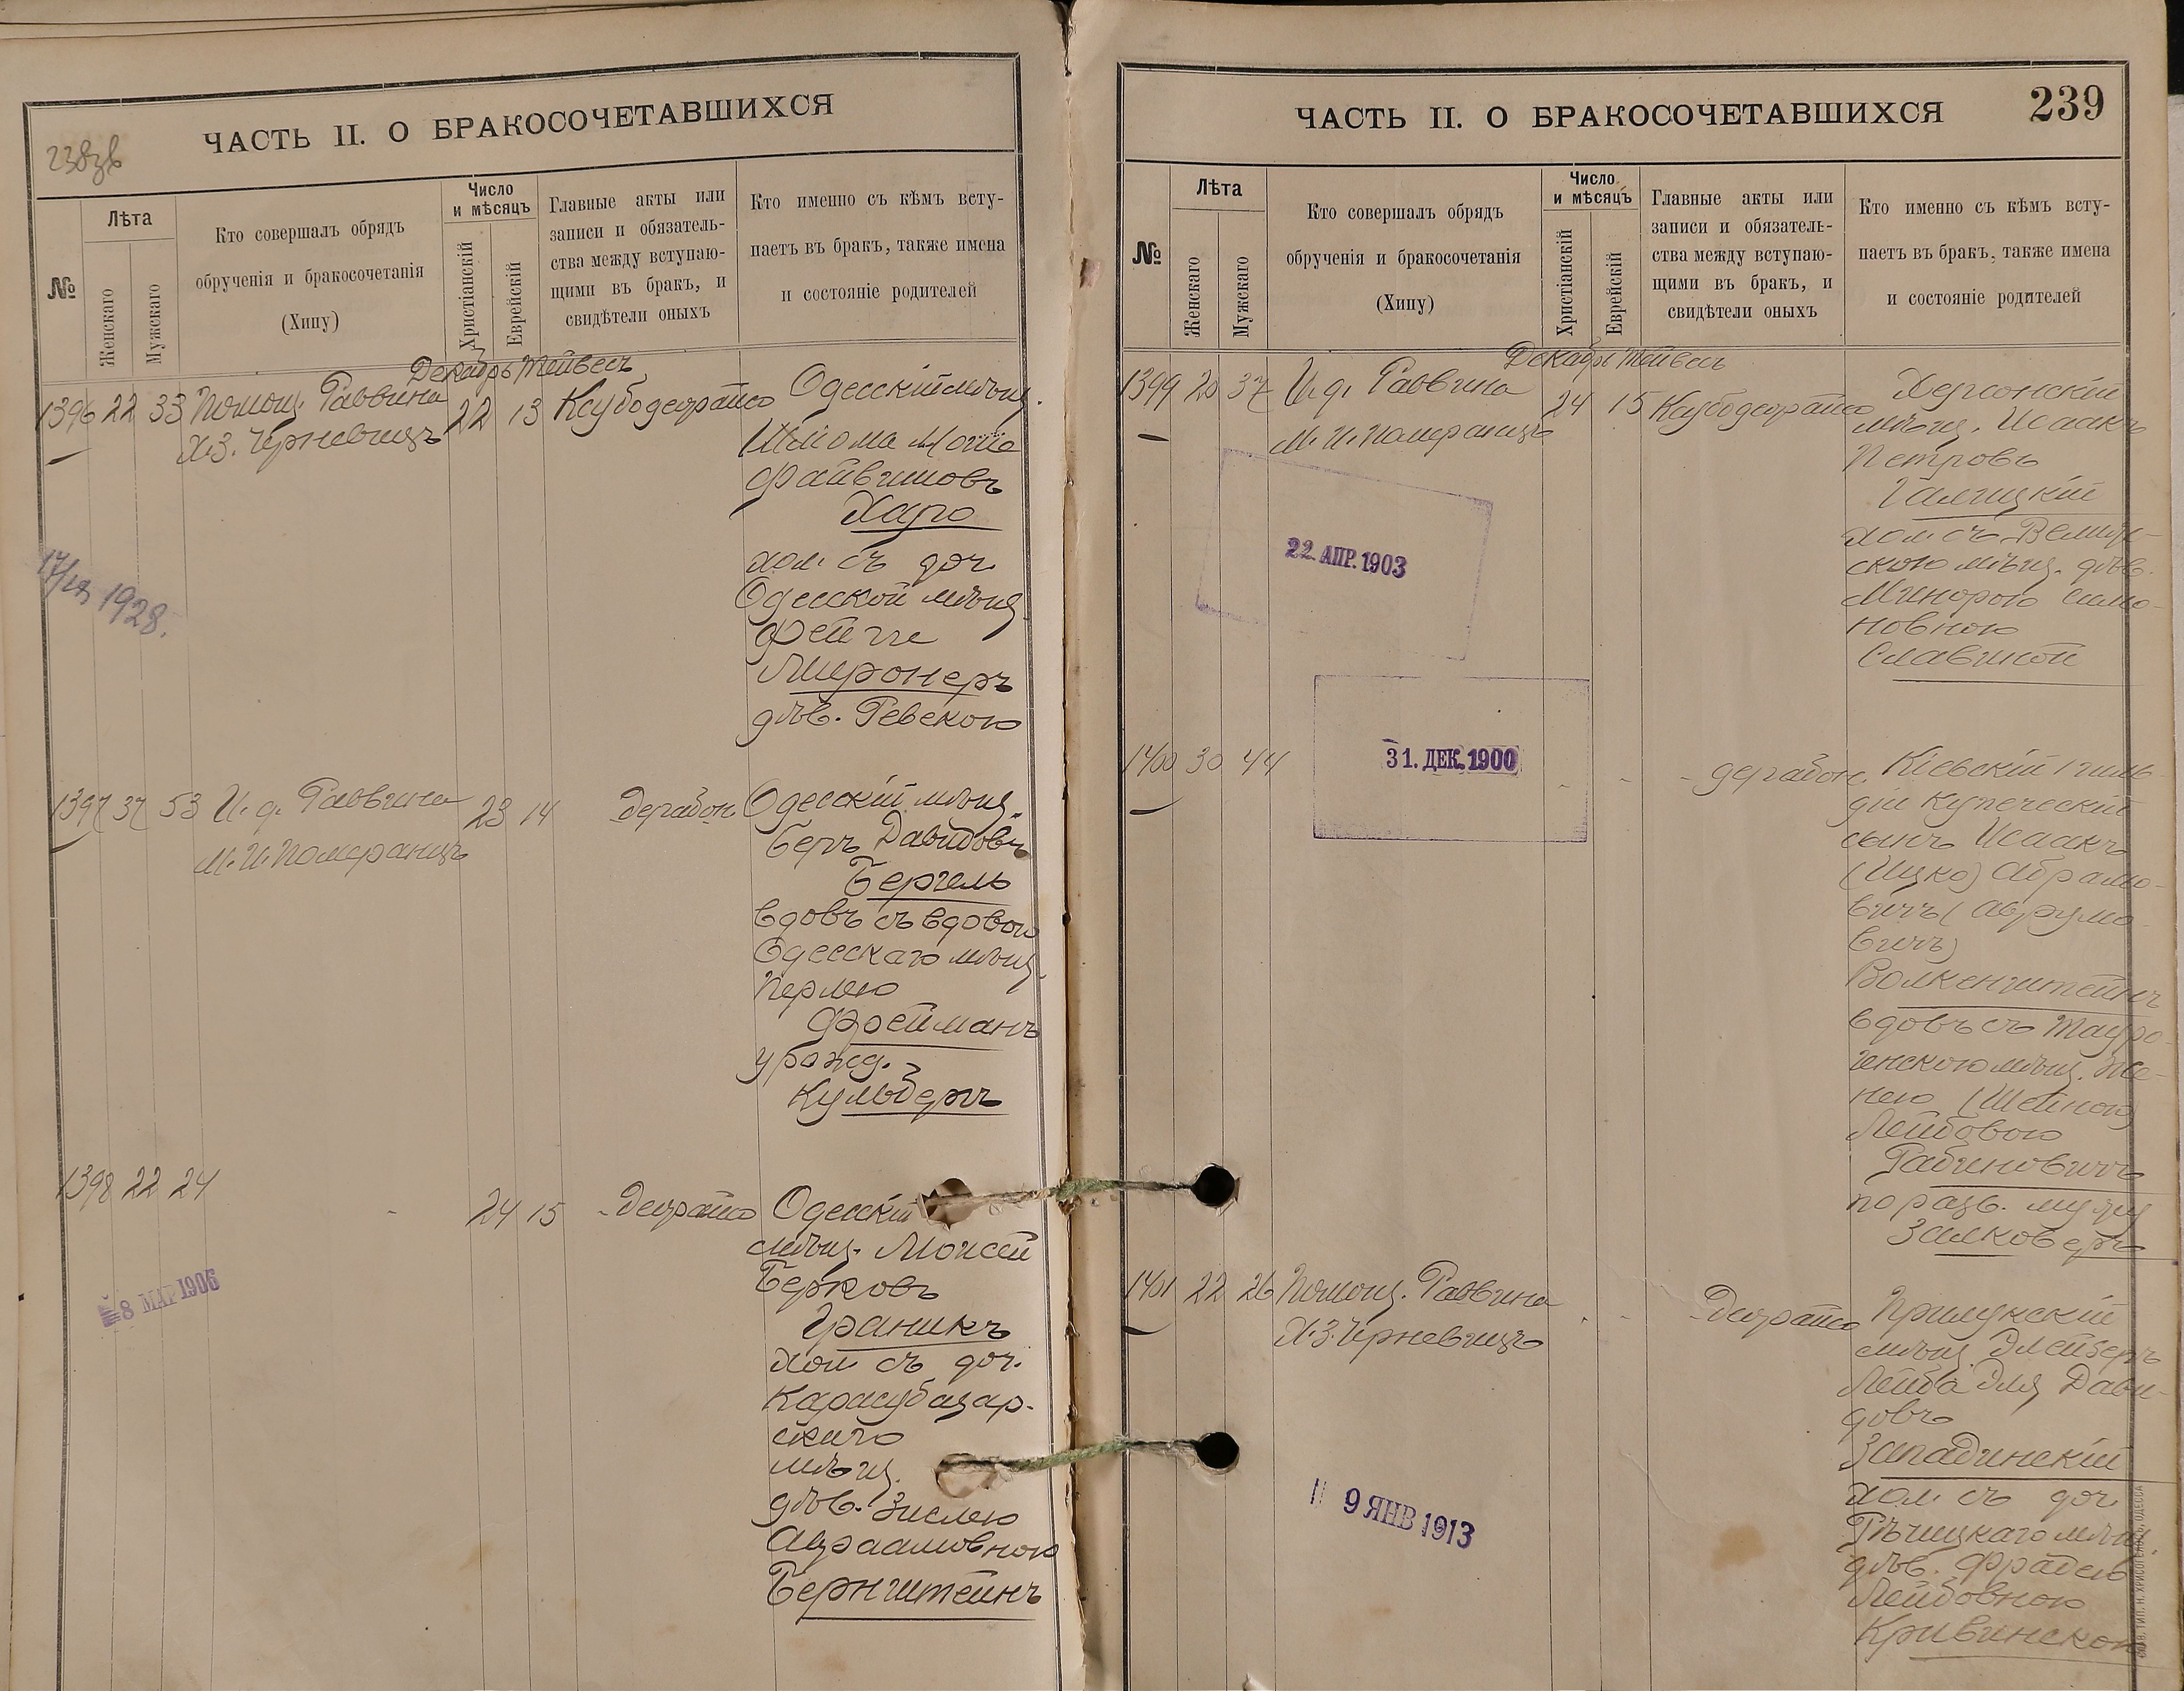 ЧАСТЬ II. О БРАКОСОЧЕТАВШИХСЯ
238зв
№
Лѣта
Женскаго
Мужскаго
Кто совершалъ обрядъ
обрученія и бракосочетанія
(Хипу)
Число
и мѣсяцъ
Христіанскій
Еврейскій
Главные акты или
записи и обязатель-
ства между вступаю-
щими въ бракъ, и
свидѣтели оныхъ
Кто именно съ кѣмъ всту-
паетъ въ бракъ, также имена
и состояніе родителей
Декабрь Тейвесъ
1396 22 33 Помощ. Раввина
Х.З. Черневицъ
22 13
Одесскій мѣщ.
Шлйома Моше
Файвишовъ
Харо
хол. съ доч.
Одесской мѣщ.
Фейге
Миронеръ
дѣв. Ревекою
1928.
1397 37 53 И. д. Раввина
М. И. Померанцъ
23 14
Одесскій мѣщ.
Беръ Давидовъ
Бергель
вдовъ съ вдовою
Одесскаго мѣщ.
Перлею
Фрейманъ
урожд.
Кульбергъ
1398 22 24
24 15
Одесскій
мѣщ. Моисей
Берковъ
Граникъ
хол. съ доч.
Карасубазар-
скаго
мѣщ.
дѣв. Зислею
Авраамовною
Бернштейнъ
8 МАР 1906
ЧАСТЬ II. О БРАКОСОЧЕТАВШИХСЯ
239
№
Лѣта
Женскаго
Мужскаго
Кто совершалъ обрядъ
обрученія и бракосочетанія
(Хипу)
Число
и мѣсяцъ
Христіанскій
Еврейскій
Главные акты или
записи и обязатель-
ства между вступаю-
щими въ бракъ, и
свидѣтели оныхъ
Кто именно съ кѣмъ всту-
паетъ въ бракъ, также имена
и состояніе родителей
Декабрь Тейвесъ
1399 20 37 И. д. Раввина
М. И. Померанцъ
24 15
Херсонскій
мѣщ. Исаакъ
Петровъ
Галицкій
хол. съ
скою мѣщ. дѣв.
Минорою Симо-
новною
Славиной
22. АПР. 1903
1400 30 44
31. ДЕК. 1900
Кіевскій 1 гиль-
діи купеческій
сынъ Исаакъ
(Ицко) Абрамо-
вичъ (Аврумо-
вичъ)
Волкенштейнъ
вдовъ съ Тауро-
генскою мѣщ. Же-
нею (Шейною)
Лейбовою
Рабиновичъ
по разв. мужу
Залковеръ
1401 22 26 Помощ. Раввина
Х. З. Черневицъ
Прилукскій
мѣщ.
Лейба Эля Дави-
довъ
Западинскій
хол. съ доч.
Рѣчицкаго мѣщ.
дѣв. Фрадель
Лейбовною
Кривинской
9 ЯНВ 1913